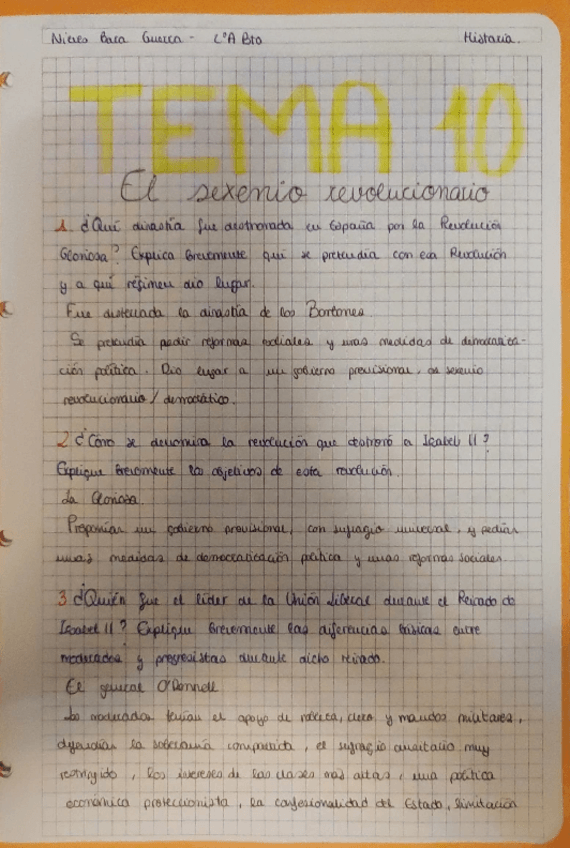 Nieves Bara Guerra - 1ºA Bto Historia.
TEMA 10
El sexenio revolucionario
1. ¿Qué dinastía fue destronada en España por la Revolución
Gloriosa? Explica brevemente qué se pretendía con esa Revolución
y a qué régimen dio lugar.
Fue desterrada la dinastía de los Borbones.
Se pretendía pedir reformas sociales y unas medidas de democratiza-
ción política. Dio lugar a un gobierno provisional, os sexenio
revolucionario / democrático.
2 ¿Cómo se denomina la revolución que destronó a Isabel II?
Explique brevemente los objetivos de esta revolución.
La Gloriosa.
Proponían un gobierno provisional, con sufragio universal, y pedían
unas medidas de democratización política y unas reformas sociales.
3 ¿Quién fue el líder de la Unión Liberal durante el Reinado de
Isabel II? Explique brevemente las diferencias básicas entre
moderados y progresistas durante dicho reinado.
El general O'Donnell
Los moderados tenían el apoyo de nobleza, clero y mandos militares,
defendían la soberanía compartida, el sufragio censitario muy
restringido, los intereses de las clases más altas, una política
económica proteccionista, la confesionalidad del Estado, limitación